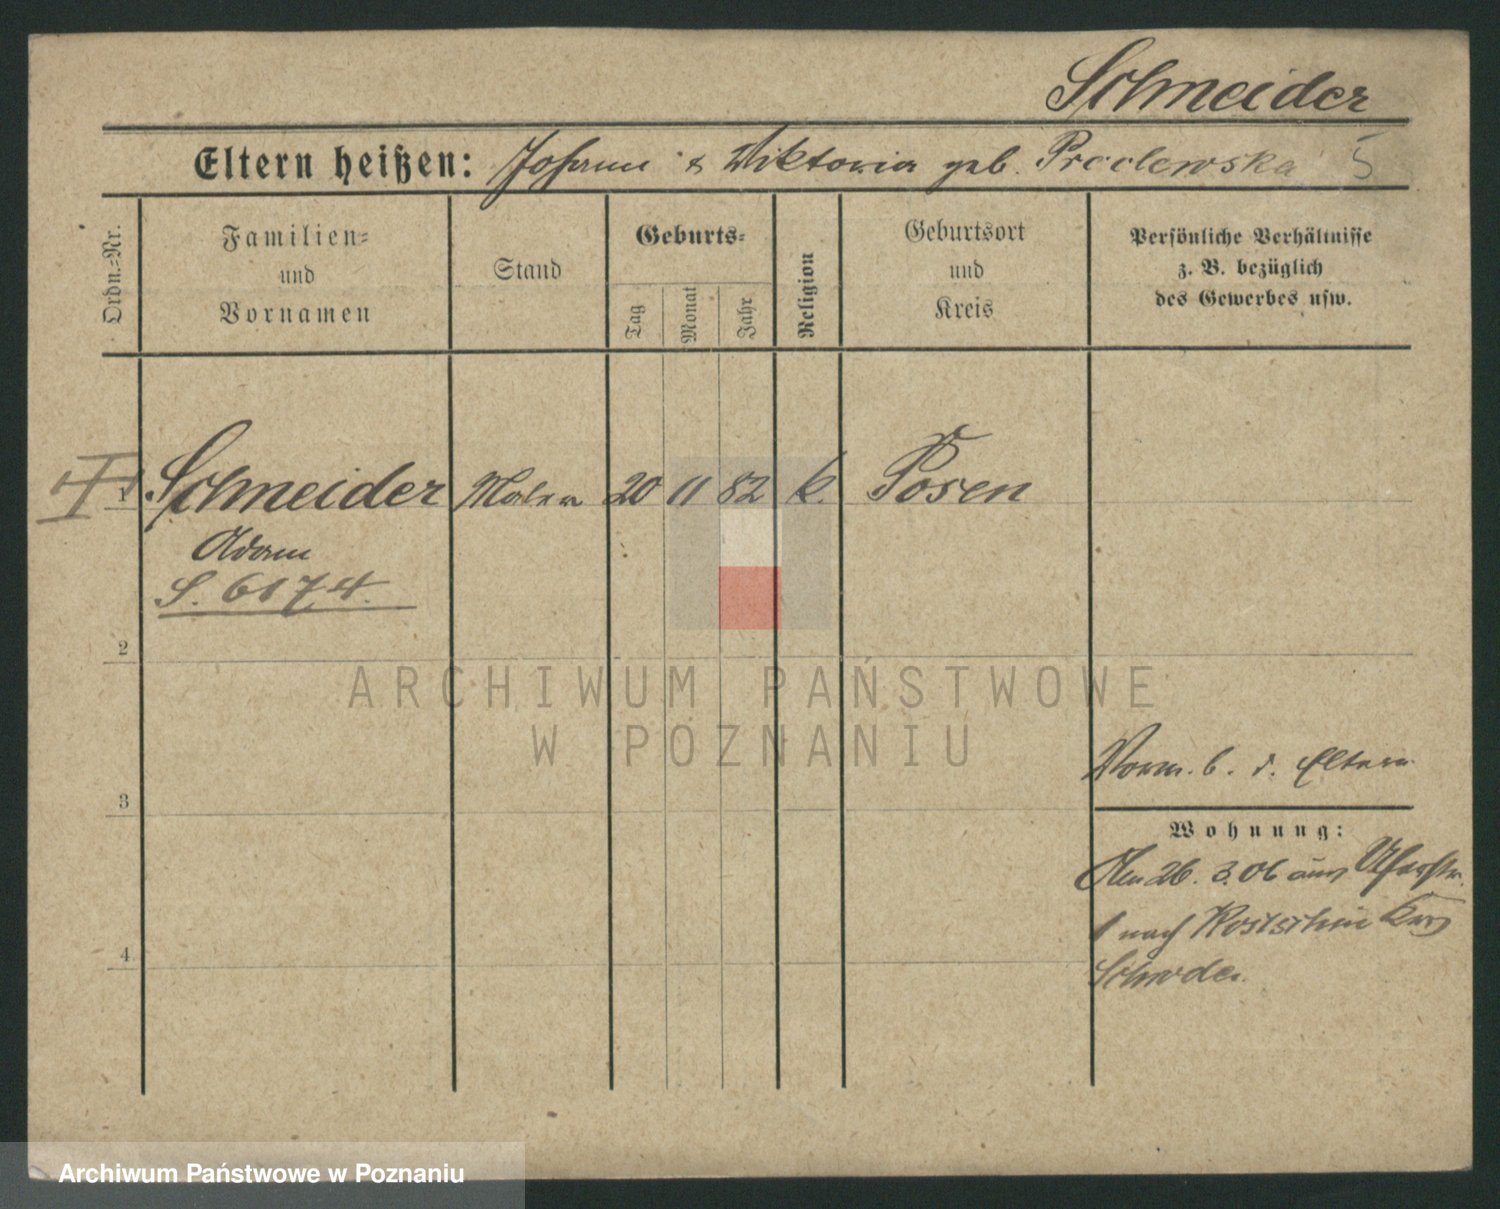 Schneider
Eltern heißen: Johann & Wiktoria geb. 5
Ordn.-Nr.
Familien-
und
Vornamen
Stand
Geburts-
Tag
Monat
Jahr
Religion
Geburtsort
und
Kreis
Persönliche Verhältnisse
z. B. bezüglich
des Gewerbes usw.
1 Schneider Maler 20 11 82 k. Posen
Adam
S. 6174.
2
ARCHIWUM PAŃSTWOWE
W POZNANIU
Vorm. b. d. Eltern
3
Wohnung:
Am 26. 3. 06 aus Uferstr.
1 nach Kostschin Krs
4
Schroda.
Archiwum Państwowe w Poznaniu